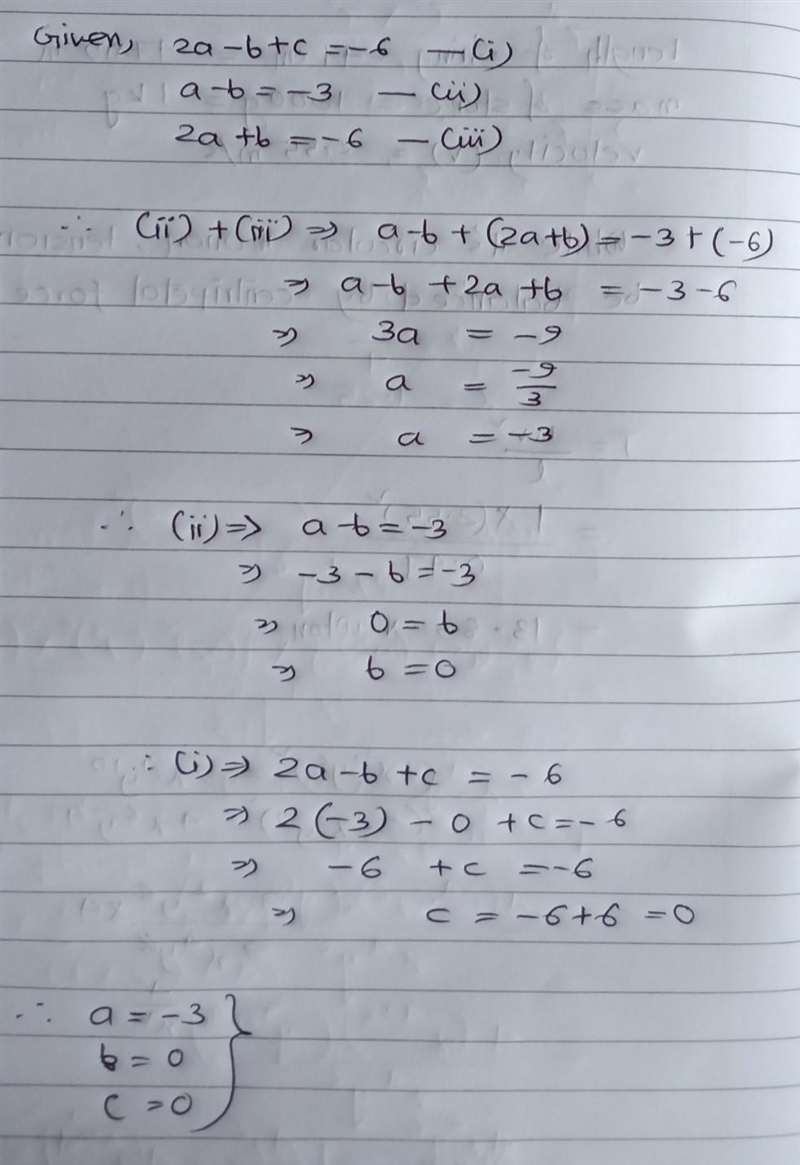 Given, 2a-b+c = -6 — (i)
a-b = -3 — (ii)
2a+b = -6 — (iii)
∴ (ii) + (iii) ⇒ a-b + (2a+b) = -3 + (-6)
⇒ a-b +2a +b = -3-6
⇒ 3a = -9
⇒ a = -9/3
⇒ a = -3
∴ (ii) ⇒ a-b = -3
⇒ -3-b = -3
⇒ 0 = b
⇒ b = 0
∴ (i) ⇒ 2a-b+c = -6
⇒ 2(-3) - 0 +c = -6
⇒ -6 +c = -6
⇒ c = -6+6 = 0
∴ a = -3 }
b = 0
c = 0